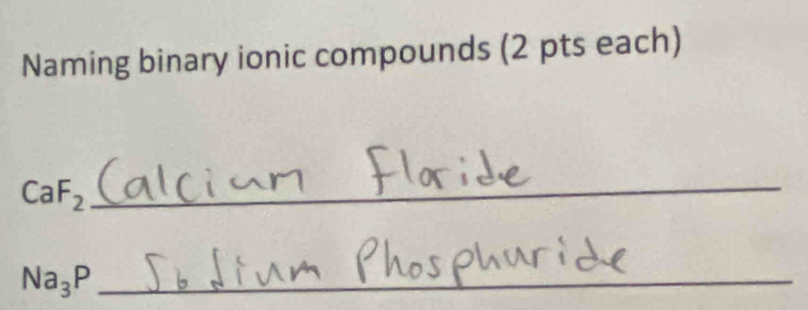 Naming binary ionic compounds (2 pts each)
CaF₂ Calcium Floride
Na₃P Sodium Phosphuride